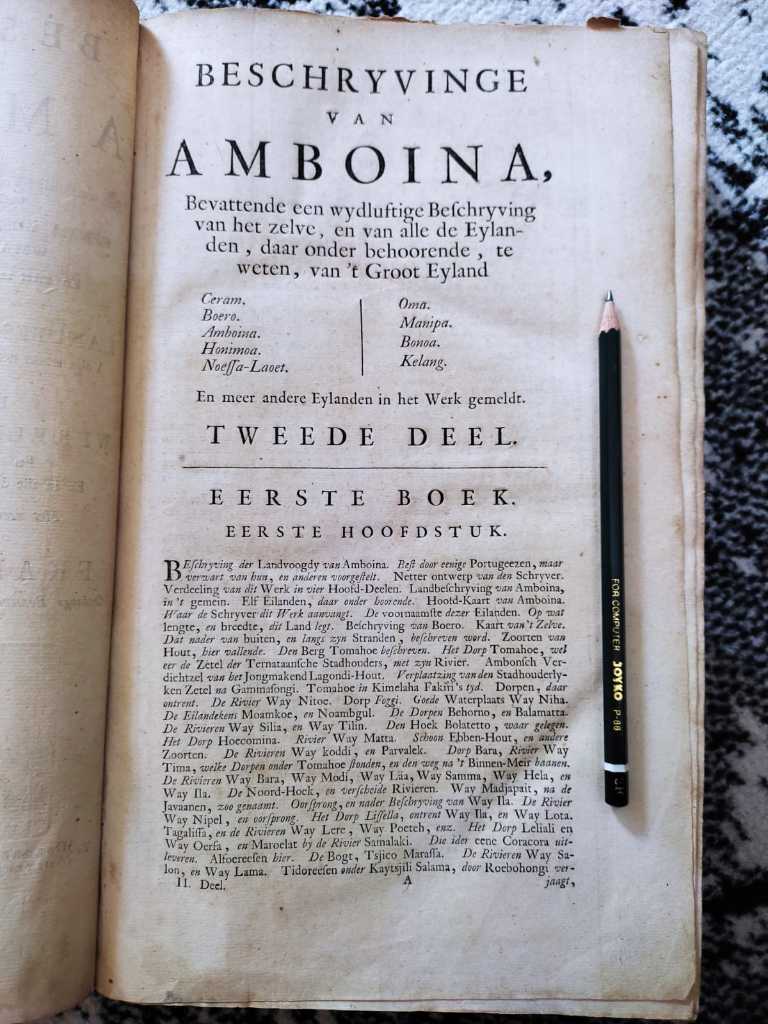 BESCHRYVINGE
VAN
AMBOINA,
Bevattende een wydluftige Beſchryving
van het zelve, en van alle de Eylan-
den, daar onder behoorende, te
weten, van 't Groot Eyland
Ceram.
Boero.
Amboina.
Honimoa.
Noeſſa-Laoet.
Oma.
Manipa.
Bonoa.
Kelang.
En meer andere Eylanden in het Werk gemeldt.
TWEEDE DEEL.
EERSTE BOEK.
EERSTE HOOFDSTUK.
BEſchryving der Landvoogdy van Amboina. Beſt door eenige Portugeezen, maar
verwart van hun, en anderen voorgeſtelt. Netter ontwerp van den Schryver.
Verdeeling van dit Werk in vier Hoofd-Deelen. Landbeſchryving van Amboina,
in 't gemein. Elf Eilanden, daar onder hoorende. Hoofd-Kaart van Amboina.
Waar de Schryver dit Werk aanvangt. De voornaamſte dezer Eilanden. Op wat
lengte, en breedte, dit Land legt. Beſchryving van Boero. Kaart van't Zelve.
Dat nader van buiten, en langs zyn Stranden, beſchreven word. Zoorten van
Hout, hier vallende. Den Berg Tomahoe beſchreven. Het Dorp Tomahoe, wel
eer de Zetel der Ternataanſche Stadhouders, met zyn Rivier. Ambonſch Ver-
dichtzel van het Jongmakend Lagondi-Hout. Verplaatzing van den Stadhouderly-
ken Zetel na Gammaſongi. Tomahoe in Kimelaha Fakiri's tyd. Dorpen, daar
ontrent. De Rivier Way Nitoe. Dorp Foggi. Goede Waterplaats Way Niha.
De Eilandekens Moamkoe, en Noambgul. De Dorpen Behorno, en Balamatta.
De Rivieren Way Silia, en Way Tilin. Den Hoek Bolatetto, waar gelegen.
Het Dorp Hoecomina. Rivier Way Matta. Schoon Ebben-Hout, en andere
Zoorten. De Rivieren Way koddi, en Parvalek. Dorp Bara, Rivier Way
Tima, welke Dorpen onder Tomahoe ſtonden, en den weg na 't Binnen-Meir baanen.
De Rivieren Way Bara, Way Modi, Way Läa, Way Samma, Way Hela, en
Way Ila. De Noord-Hoek, en verſcheide Rivieren. Way Madjapait, na de
Javaanen, zoo genaamt. Oorſprong, en nader Beſchryving van Way Ila. De Rivier
Way Nipel, en oorſprong. Het Dorp Liſſella, ontrent Way Ila, en Way Lota.
Tagaliſſa, en de Rivieren Way Lere, Way Poeteh, enz. Het Dorp Leliali en
Way Oerſa, en Maroelat by de Rivier Samalaki. Die ider eene Coracora uit-
leveren. Alfoereeſen hier. De Bogt, Tsjico Maraſſa. De Rivieren Way Sa-
lon, en Way Lama. Tidoreeſen onder Kaytsjili Salama, door Roebohongi ver-
II. Deel. A jaagt,
FOR COMPUTER JOYKO P-88
2B